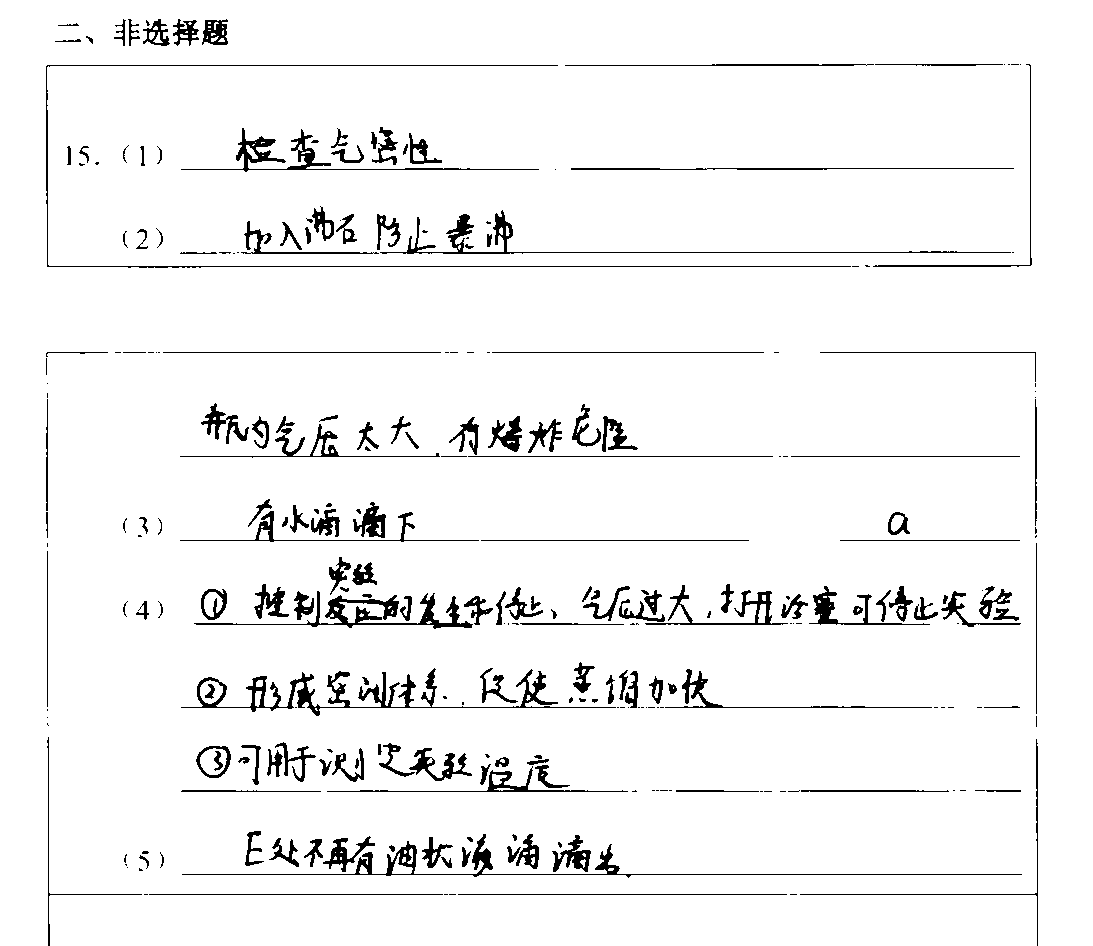 二、非选择题
15.（1） 检查气密性
（2） 加入沸石 防止暴沸
瓶内气压太大，有爆炸危险
（3） 有水滴滴下 a
实验
（4） ① 控制反应的发生和停止、气压过大，打开活塞可停止实验
② 形成密闭体系，促使蒸馏加快
③可用于测定实验温度
（5） E处不再有油状液滴滴出.